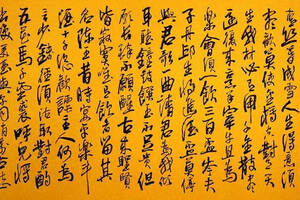 青絲暮成雪人生得意須
盡歡莫使金樽空對月天
生我材必有用千金散盡
還復來烹羊宰牛且為
樂會須一飲三百杯岑夫
子丹丘生將進酒君莫停
與君歌一曲請君為我傾
耳聽鐘鼓饌玉不足貴但
願長醉不願醒古來聖賢
皆寂寞惟有飲者留其
名陳王昔時宴平樂斗
酒十千恣歡謔主人何為
言少錢徑須沽取對君酌
五花馬千金裘呼兒將
出換美酒與爾同銷萬古愁